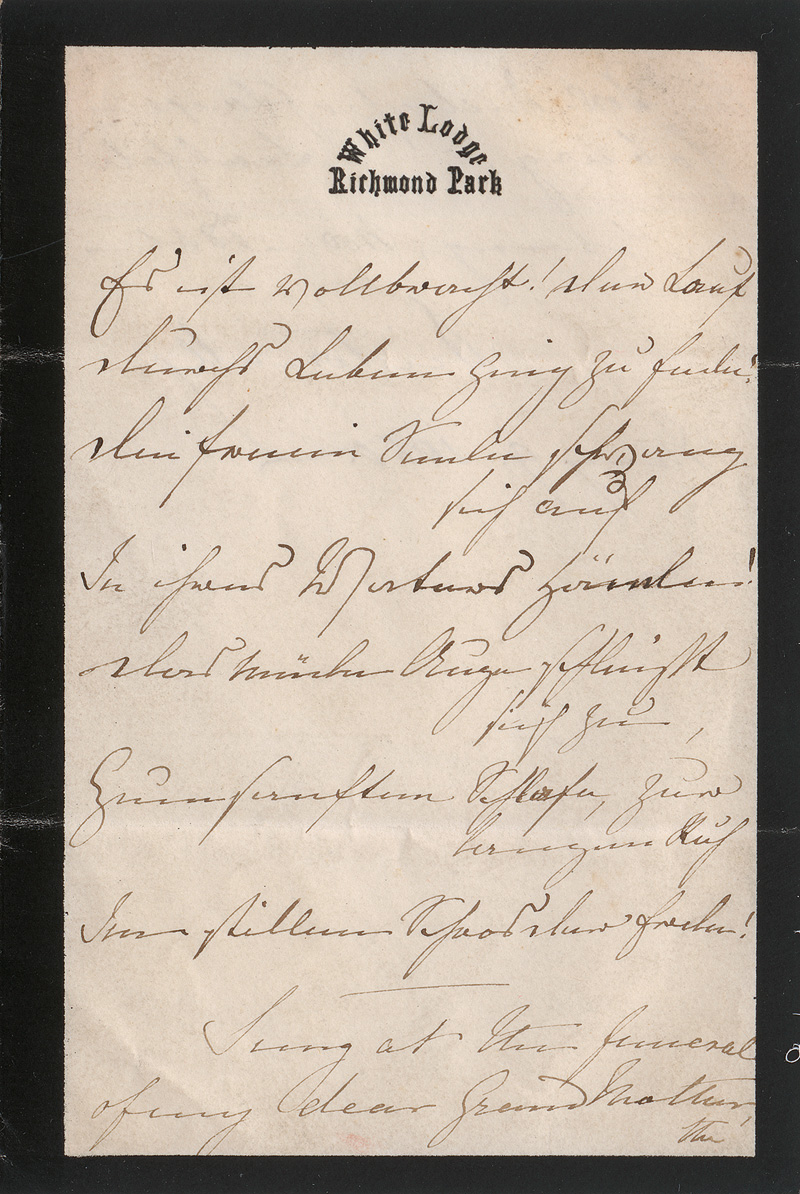 White Lodge
Richmond Park
Es ist vollbracht! der Lauf
durchs Leben ging zu Ende!
die freie Seele schwang
sich auf
In ihres Vaters Hände!
das müde Auge schließt
sich zu,
Zum sanften Schlafe, zur
langen Ruh
Im stillen Schoos der Erde!
Sung at the funeral
of my dear Grand Mother,
the